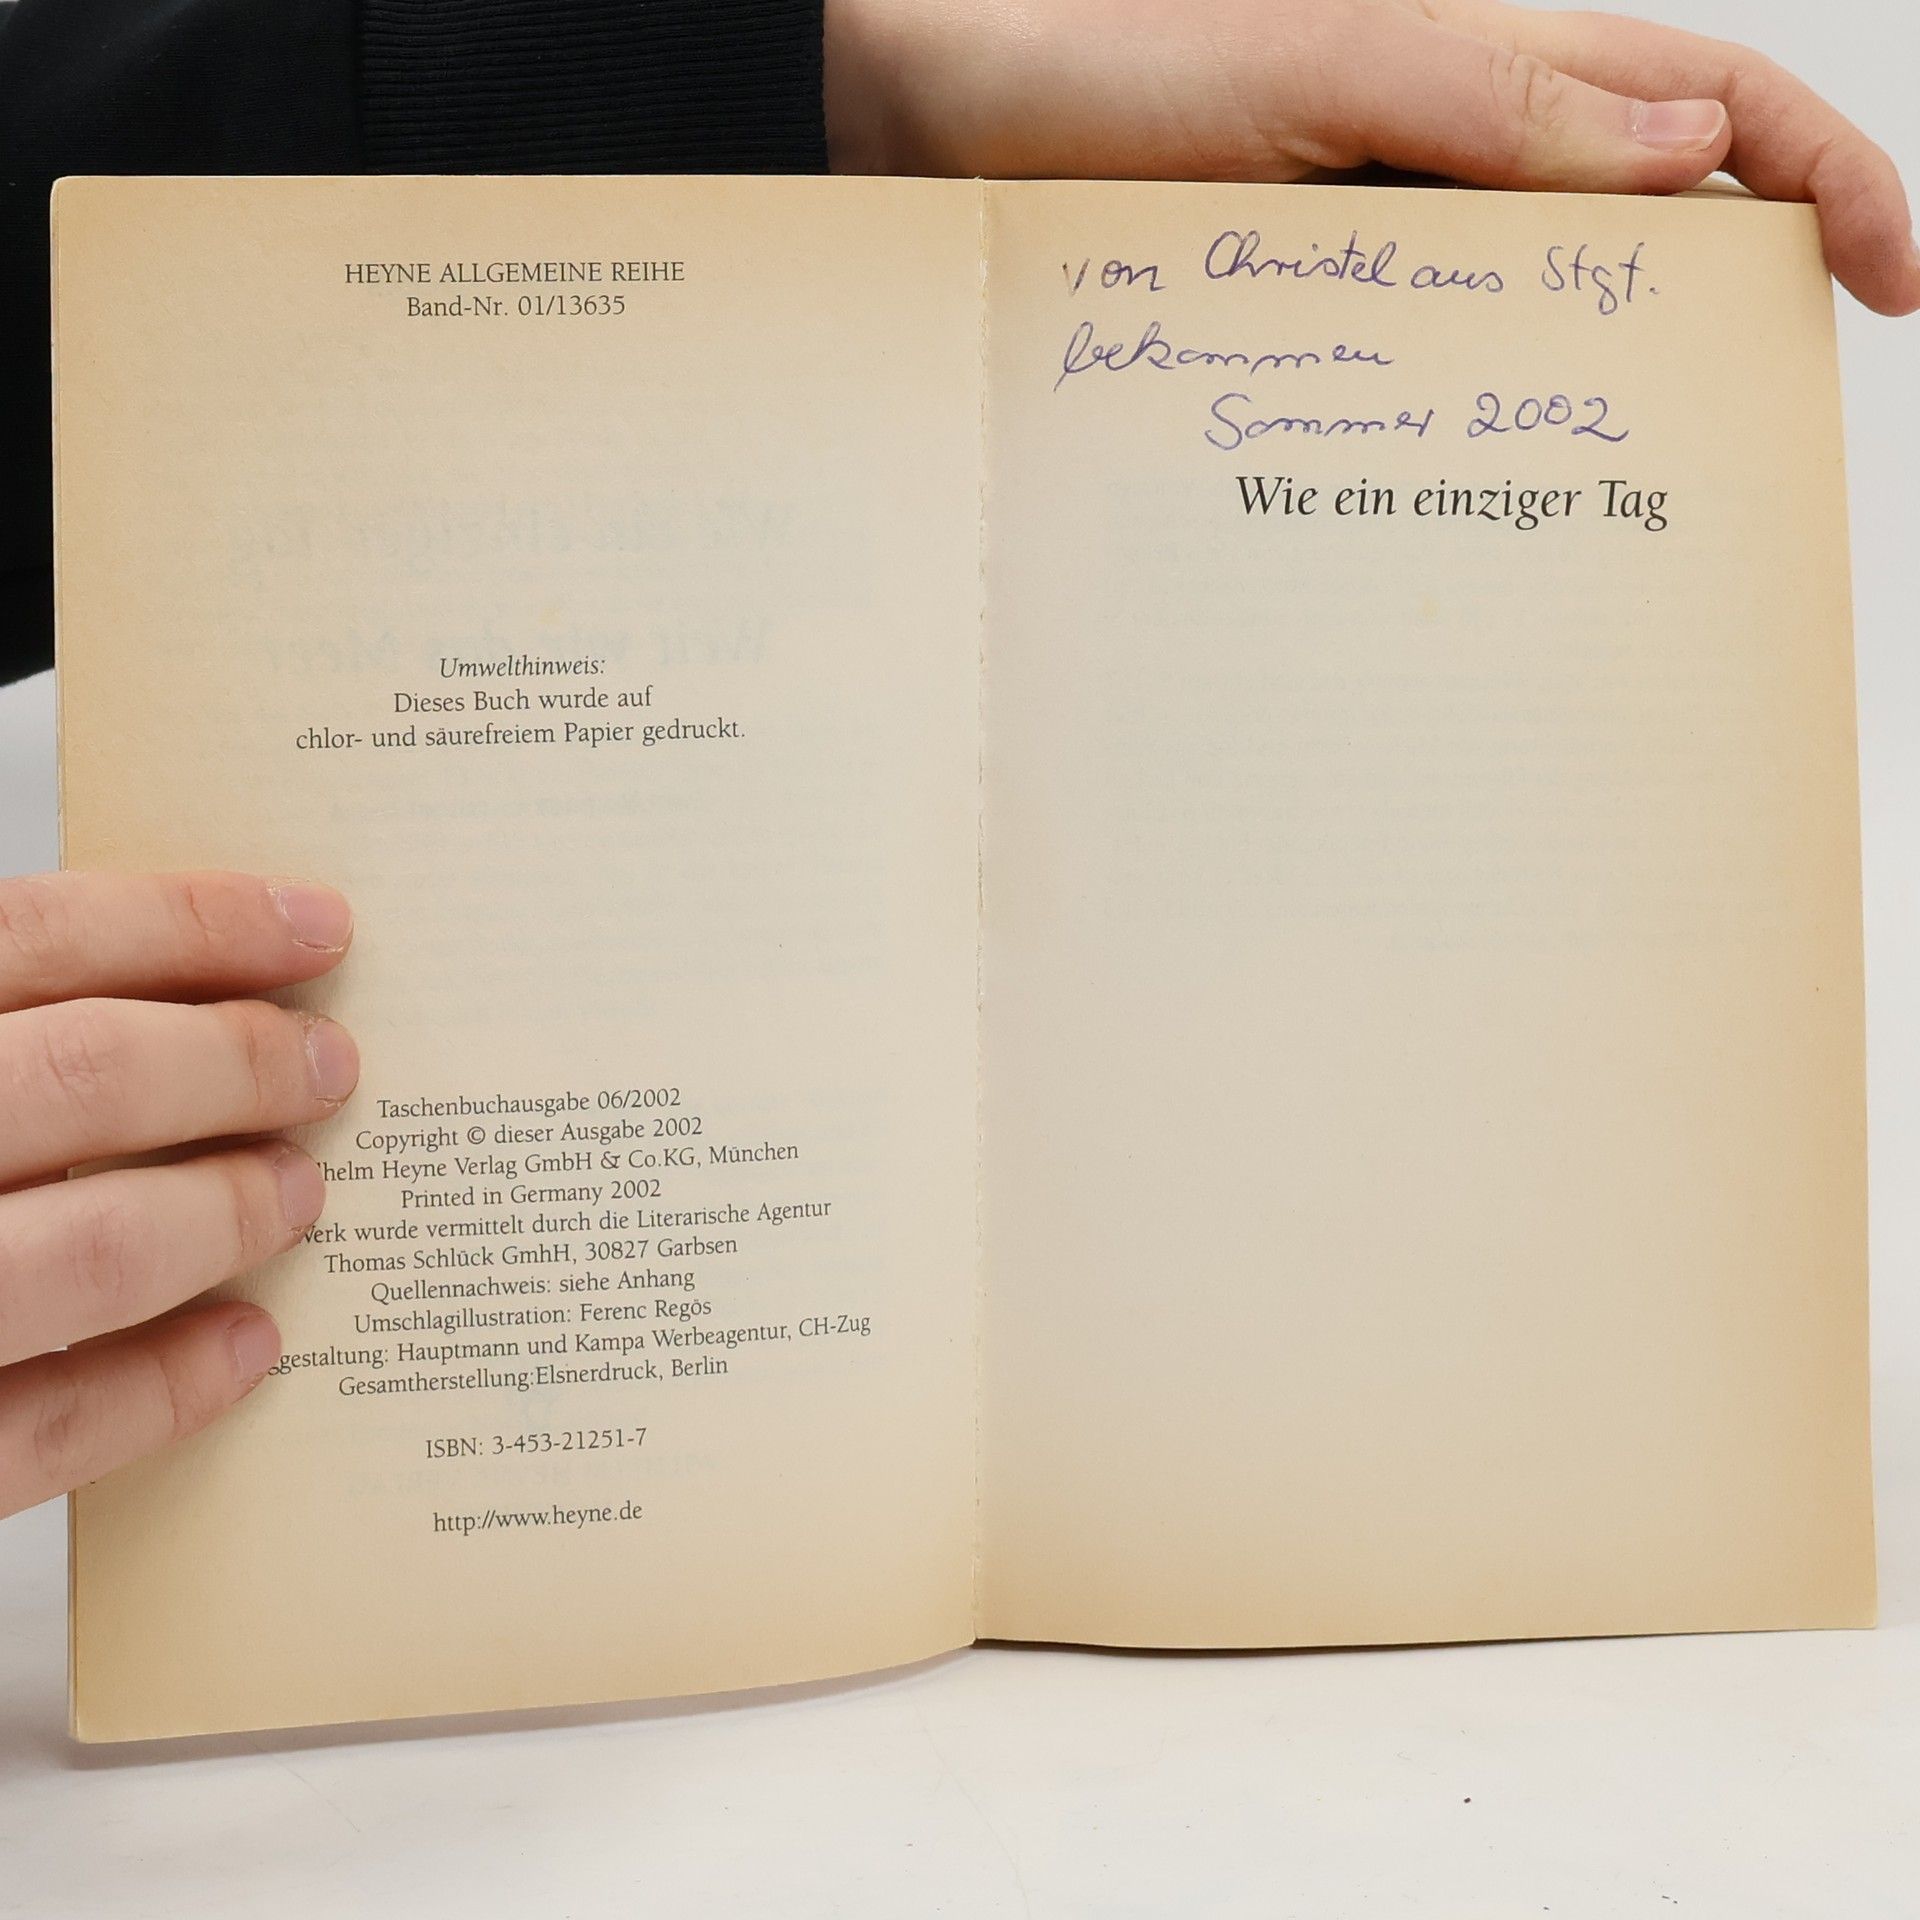 HEYNE ALLGEMEINE REIHE
Band-Nr. 01/13635
Umwelthinweis:
Dieses Buch wurde auf
chlor- und säurefreiem Papier gedruckt.
Taschenbuchausgabe 06/2002
Copyright © dieser Ausgabe 2002
Heyne Verlag GmbH & Co.KG, München
Printed in Germany 2002
Werk wurde vermittelt durch die Literarische Agentur
Thomas Schlück GmhH, 30827 Garbsen
Quellennachweis: siehe Anhang
Umschlagillustration: Ferenc Regös
Hauptmann und Kampa Werbeagentur, CH-Zug
Gesamtherstellung:Elsnerdruck, Berlin
ISBN: 3-453-21251-7
http://www.heyne.de
von Christel aus Stgt.
bekommen
Sommer 2002
Wie ein einziger Tag